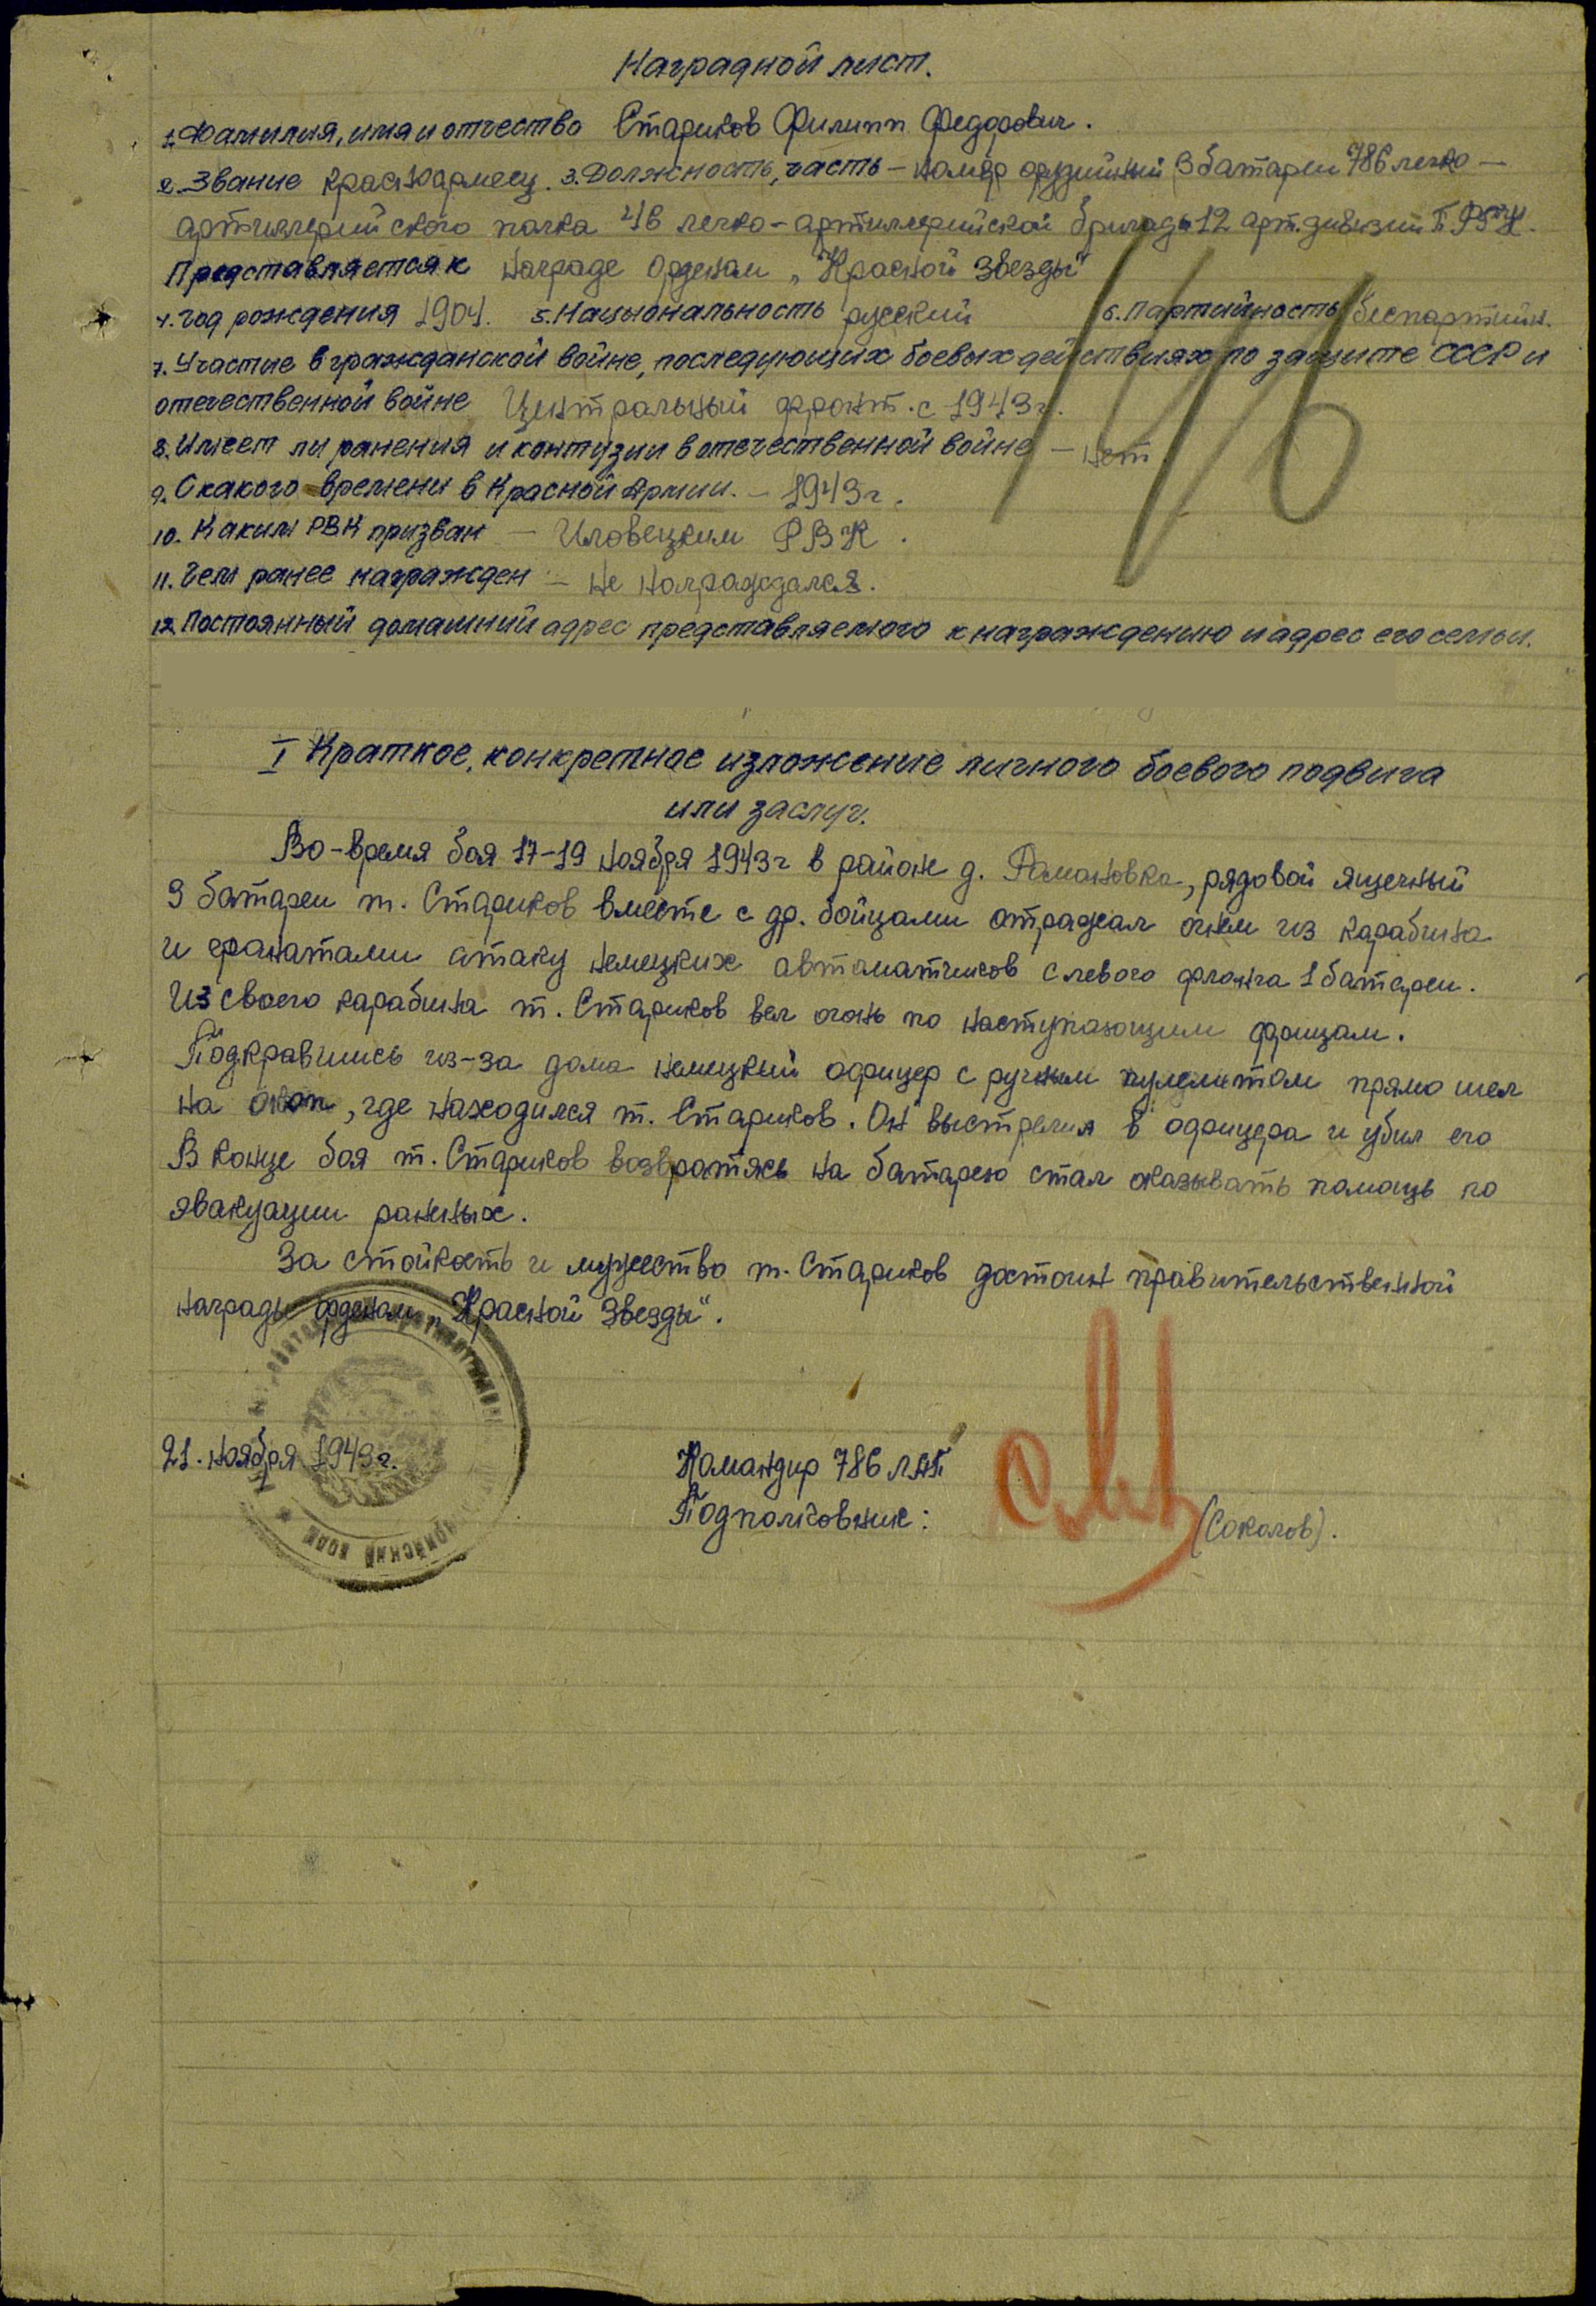 Наградной лист.
1. Фамилия, имя и отчество Стариков Филипп Федорович.
2. Звание красноармеец. 3. Должность, часть – номер орудийный 3 батареи 786 легко –
артиллерийского полка 46 легко-артиллерийской бригады 12 арт. дивизии Р.Г.К.
Представляется к награде Орденом „Красной Звезды"
4. год рождения 1904. 5. Национальность русский 6. Партийность беспартийн.
7. Участие в гражданской войне, последующих боевых действиях по защите СССР и
отечественной войне Центральный фронт. с 1943 г.
8. Имеет ли ранения и контузии в отечественной войне – нет
9. С какого времени в Красной Армии. – 1943 г.
10. Каким РВК призван – Иловецким РВК.
11. Чем ранее награжден – не награждался.
12. Постоянный домашний адрес представляемого к награждению и адрес его семьи.
116
I Краткое, конкретное изложение личного боевого подвига
или заслуг.
Во-время боя 17-19 ноября 1943 г в районе д. Рамановка, рядовой ящечный
3 батареи т. Стариков вместе с др. бойцами отражал огнем из карабина
и гранатами атаку немецких автоматчиков с левого фланга 1 батареи.
Из своего карабина т. Стариков вел огонь по наступающим фрицам.
Подкравшись из-за дома немецкий офицер с ручным пулеметом прямо шел
на окоп, где находился т. Стариков. Он выстрелил в офицера и убил его
В конце боя т. Стариков возвратясь на батарею стал оказывать помощь по
эвакуации раненых.
За стойкость и мужество т. Стариков достоин правительственной
награды орденом „Красной Звезды".
21. ноября 1943 г.
Командир 786 ЛАП
Подполковник: (Соколов).